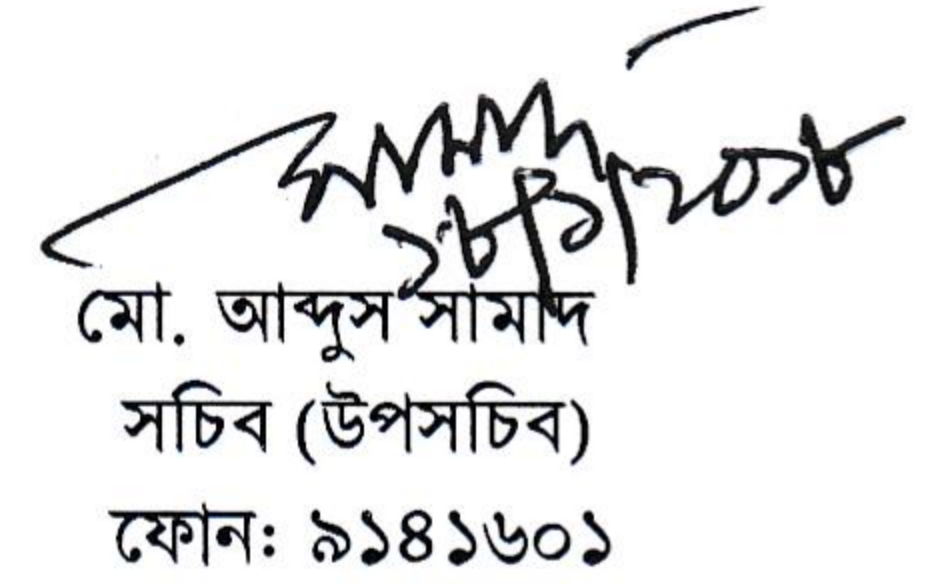 সামাদ
১৮/১/২০১৮
মো. আব্দুস সামাদ
সচিব (উপসচিব)
ফোন: ৯১৪১৬০১